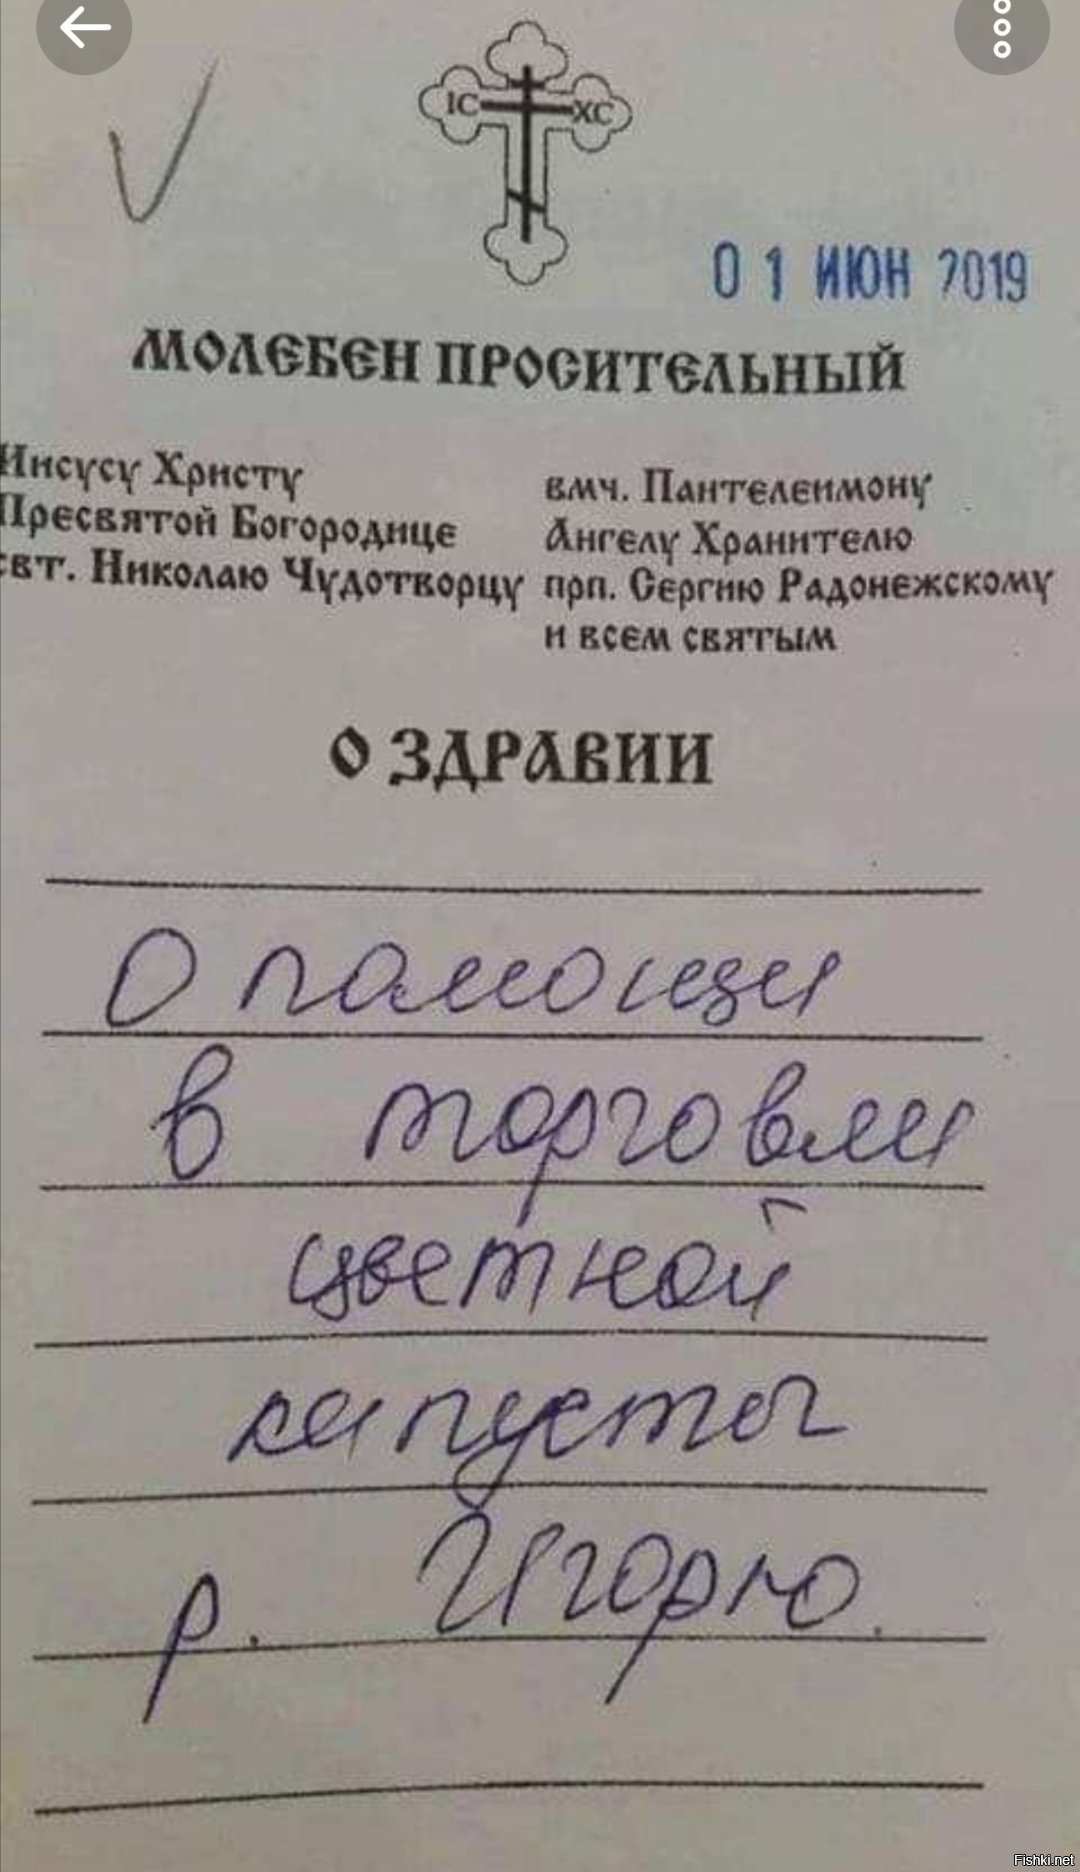 IC XC
01 ИЮН 2019
МОЛЕБЕН ПРОСИТЕЛЬНЫЙ
Иисусу Христу
Пресвятой Богородице
свт. Николаю Чудотворцу
вмч. Пантелеимону
Ангелу Хранителю
прп. Сергию Радонежскому
и всем святым
О ЗДРАВИИ
О памощи
в торговли
цветной
капусты
р. Игорю.
Fishki.net